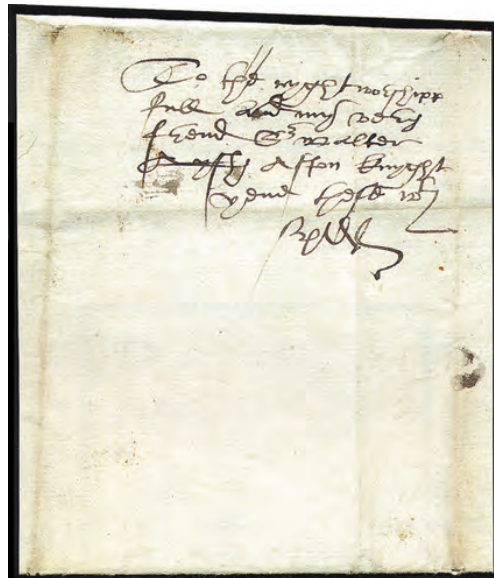 To the ryght worshipp
full and my very
frend Sr walter
Aston knyght
these wt